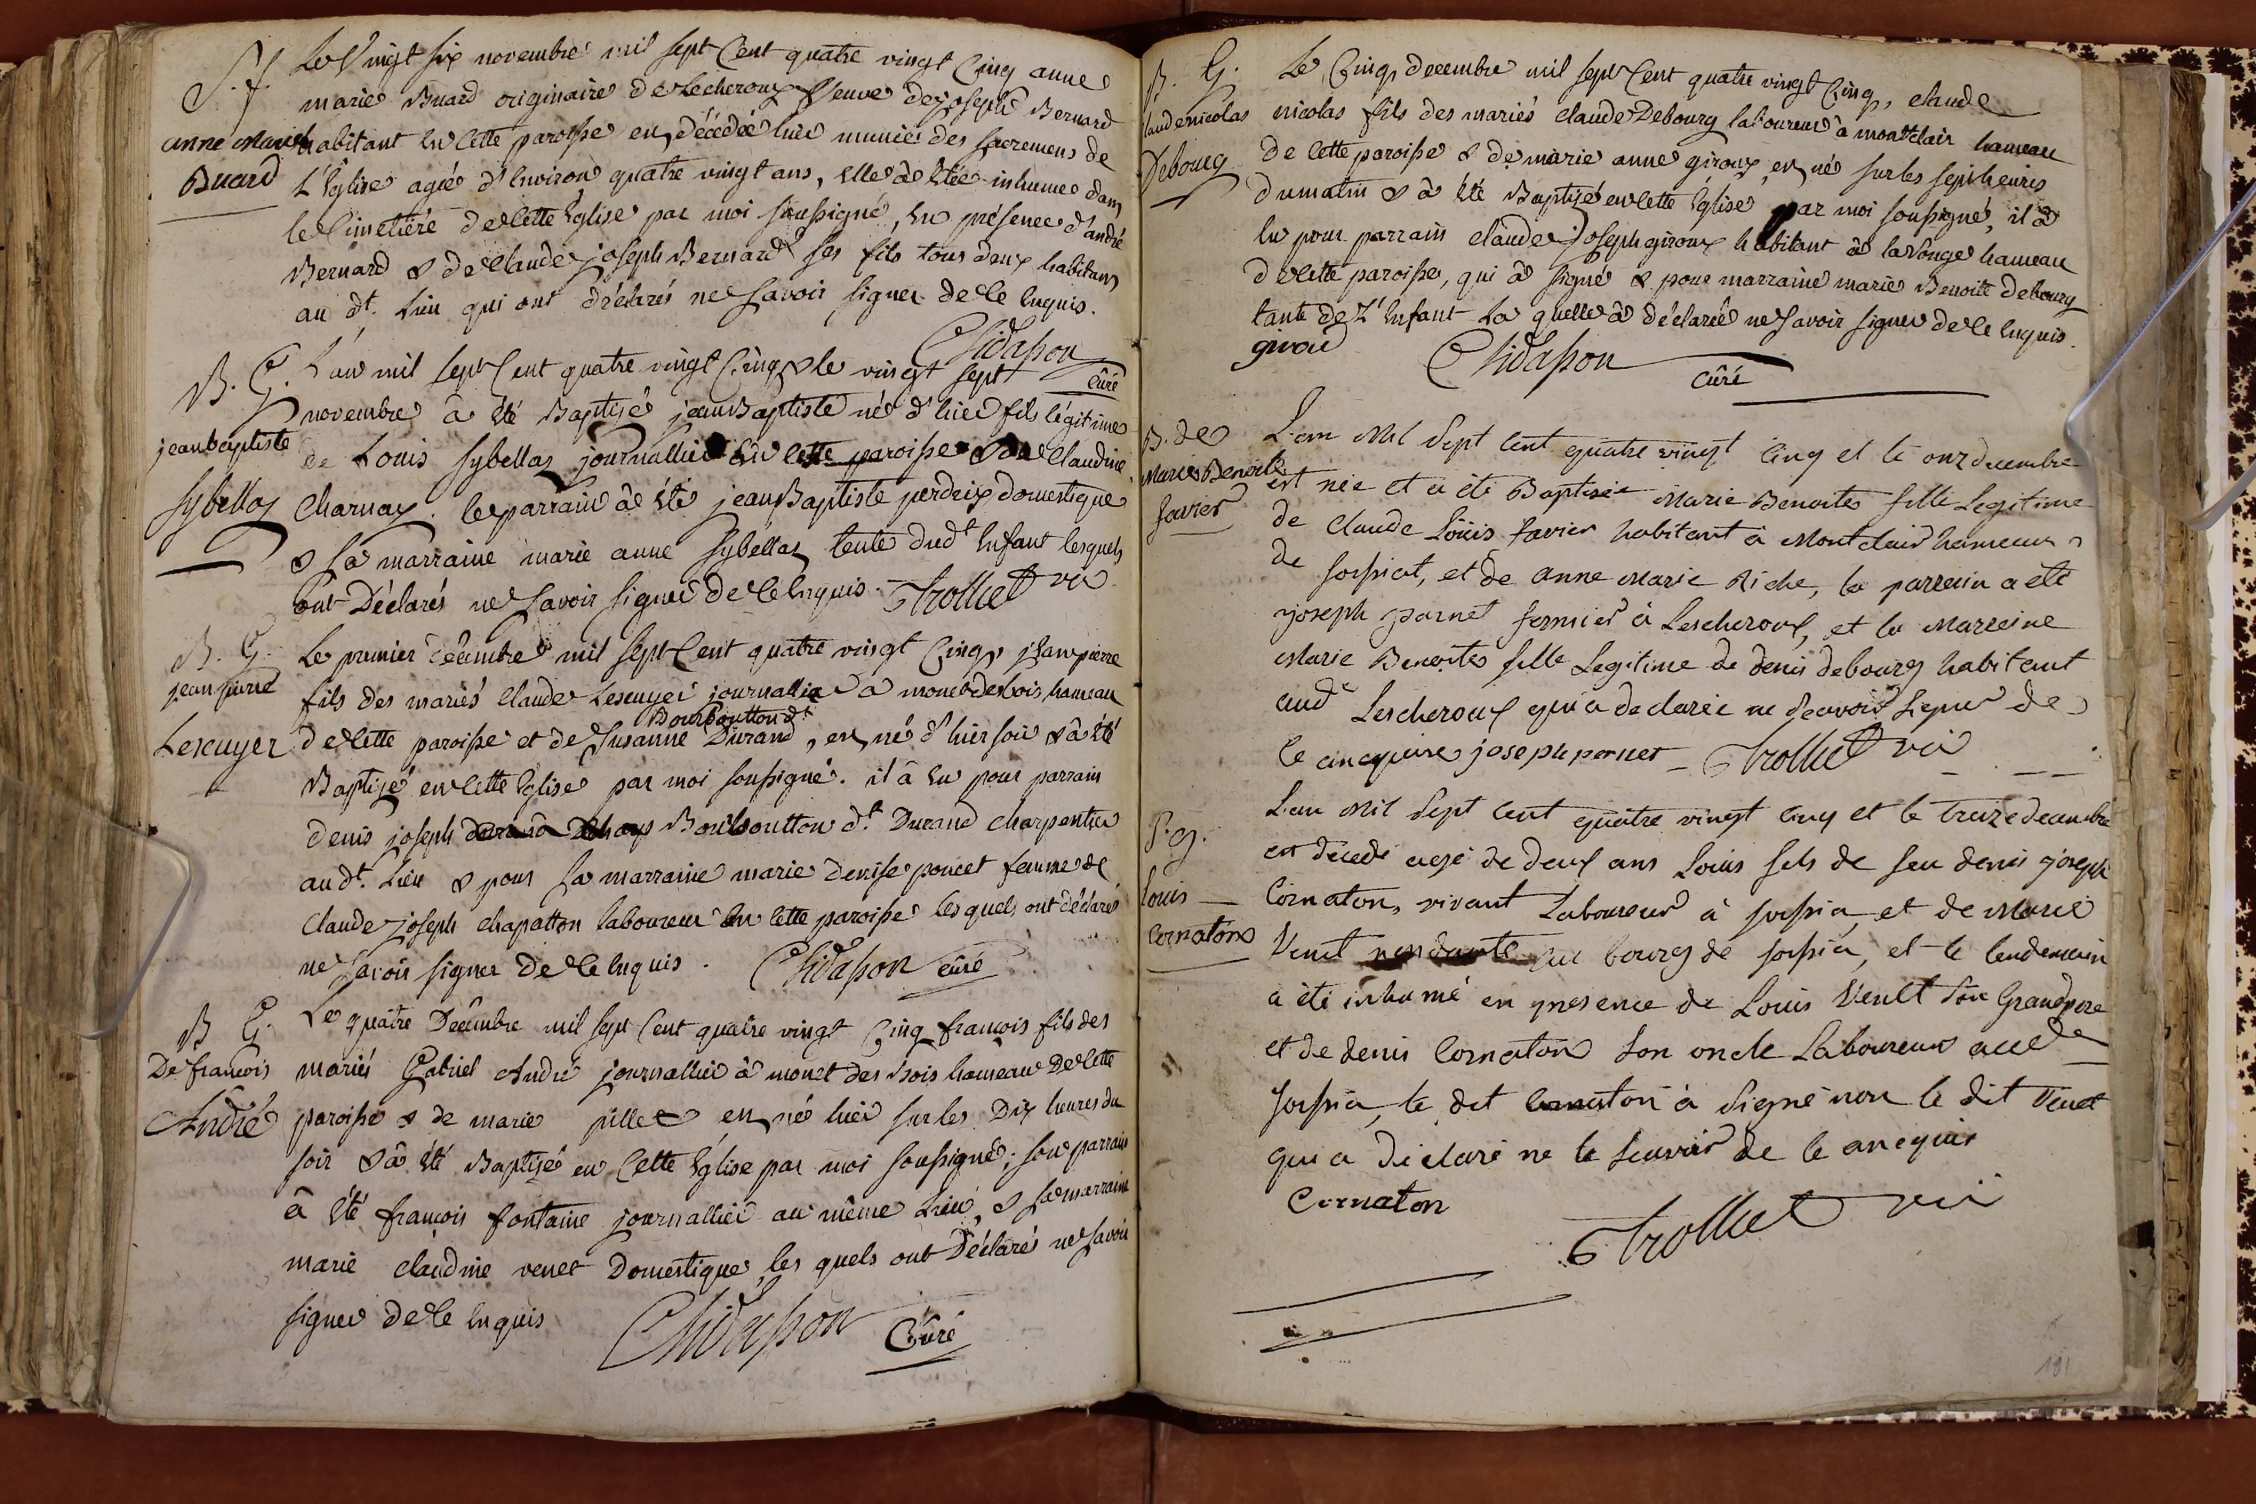 S. f.
anne Marie
Buard
Le Vingt six novembre mil sept Cent quatre vingt Cinq anne
marie Buard originaire de Lecheroux Veuve de joseph Bernard
habitant en cette paroisse en décédée hier munie des sacremens de
L'Eglise agée d'Environ quatre vingt ans, elle à étée inhumée dans
le Cimetiére de cette Eglise par moi soussigné, en présence d'andré
Bernard & de Claude joseph Bernard ses fils tous deux habitans
au dt. Lieu qui ont déclarés ne savoir signer de ce Enquis.
Chidasson curé
B. G.
jean baptiste
Sybellas
L'an mil sept Cent quatre vingt Cinq & le vingt sept
novembre à été Baptisé jean Baptiste né d'hier fils légitime
de Louis Sybellas journallier en cette paroisse & de Claudine
Charnay. le parrain à été jean Baptiste perdrix domestique
& sa marraine marie anne Sybellas tente dudt Enfant lesquels
ont Déclarés ne savoir signer de ce Enquis. Trolliet vic
B. G.
jean pierre
Lescuyer
Le premier décembre mil sept Cent quatre vingt Cinq, jean pierre
fils des mariés Claude Lescuyer journallier à monêt des bois hameau
Bourboutton dt
de cette paroisse et de Susanne Durand, en né d'hier soir & à été
Baptisé en cette Eglise par moi soussigné. il à eu pour parrain
denis joseph Bourboutton dt. Durand charpentier
au dt. Lieu & pour sa marraine marie denise poncet femme de
Claude joseph Chapatton laboureur en cette paroisse lesquels ont déclarés
ne savoir signer de ce Enquis. Chidasson curé
B G.
De françois
André
Le quatre Décembre mil sept Cent quatre vingt Cinq françois fils des
mariés Gabriel André journallier à monet des bois hameau De cette
paroisse & de marie pillet en né hier sur les Dix heures du
soir & à été Baptisé en Cette Eglise par moi soussigné; son parrain
à été françois fontaine journallier au même Lieu, & sa marraine
marie claudine venet Domestique, les quels ont Déclarés ne savoir
signer de ce Enquis
Chidasson Curé
B. G.
Claude nicolas
Debourg
Le Cinq decembre mil sept Cent quatre vingt Cinq, claude
nicolas fils des mariés claude Debourg laboureur à montclair hameau
de cette paroisse & de marie anne giroux, en né sur les sept heures
du matin & à été Baptisé en cette Eglise par moi soussigné, il à
eu pour parrain claude joseph giroux habitant à la Vonge hameau
de cette paroisse, qui à signé & pour marraine marie Benoite debourg
tante de L'Enfant La quelle à déclarée ne savoir signer de ce Enquis.
girou
Chidasson curé
B. de
Marie Benoite
favier
L'an Mil Sept cent quatre vingt cinq et le onz decembre
est née et a été Baptisée Marie Benoite fille Legitime
de Claude Loüis favier habitant a Montclair hameau
de sorpiat, et de anne Marie Riche, le parrain a été
joseph parnet fermier à Lescheroux, et la Marreine
Marie Benoite fille Legitime de denis debourg habitant
audt Lescheroux qui a declarée ne scavoir signer de
ce encquise joseph pernet Trolliet vic
S. G.
Louis
Cornaton
L'an Mil Sept cent quatre vingt cinq et le treize decembre
en décedé agé de deux ans Louis fils de feu denis joseph
Cornaton, vivant Laboureur à sorpia, et de Marie
Venet au bourg de sorpia, et le lendemain
a été inhumé en presence de Louis Venet son Grandpere
et de denis Cornaton son oncle Laboureur
sorpia, le dit Cornaton à Signé non le dit Venet
qui a déclaré ne le scavoir de ce ancquis
Cornaton
Trolliet vic
191